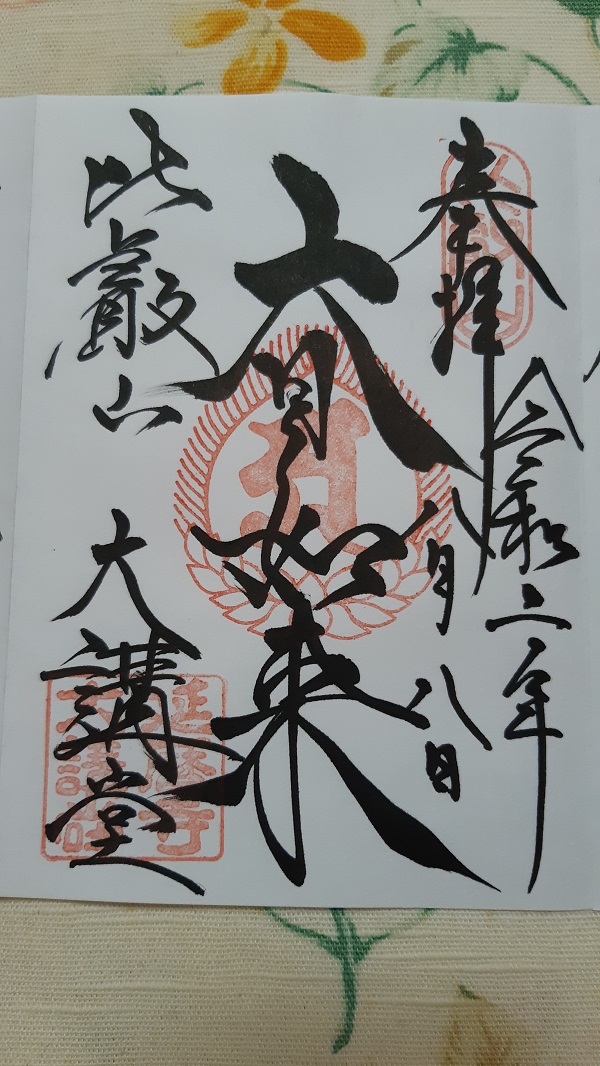 奉拝
令和二年
八月八日
大日如来
比叡山
大講堂
延暦寺
大講堂